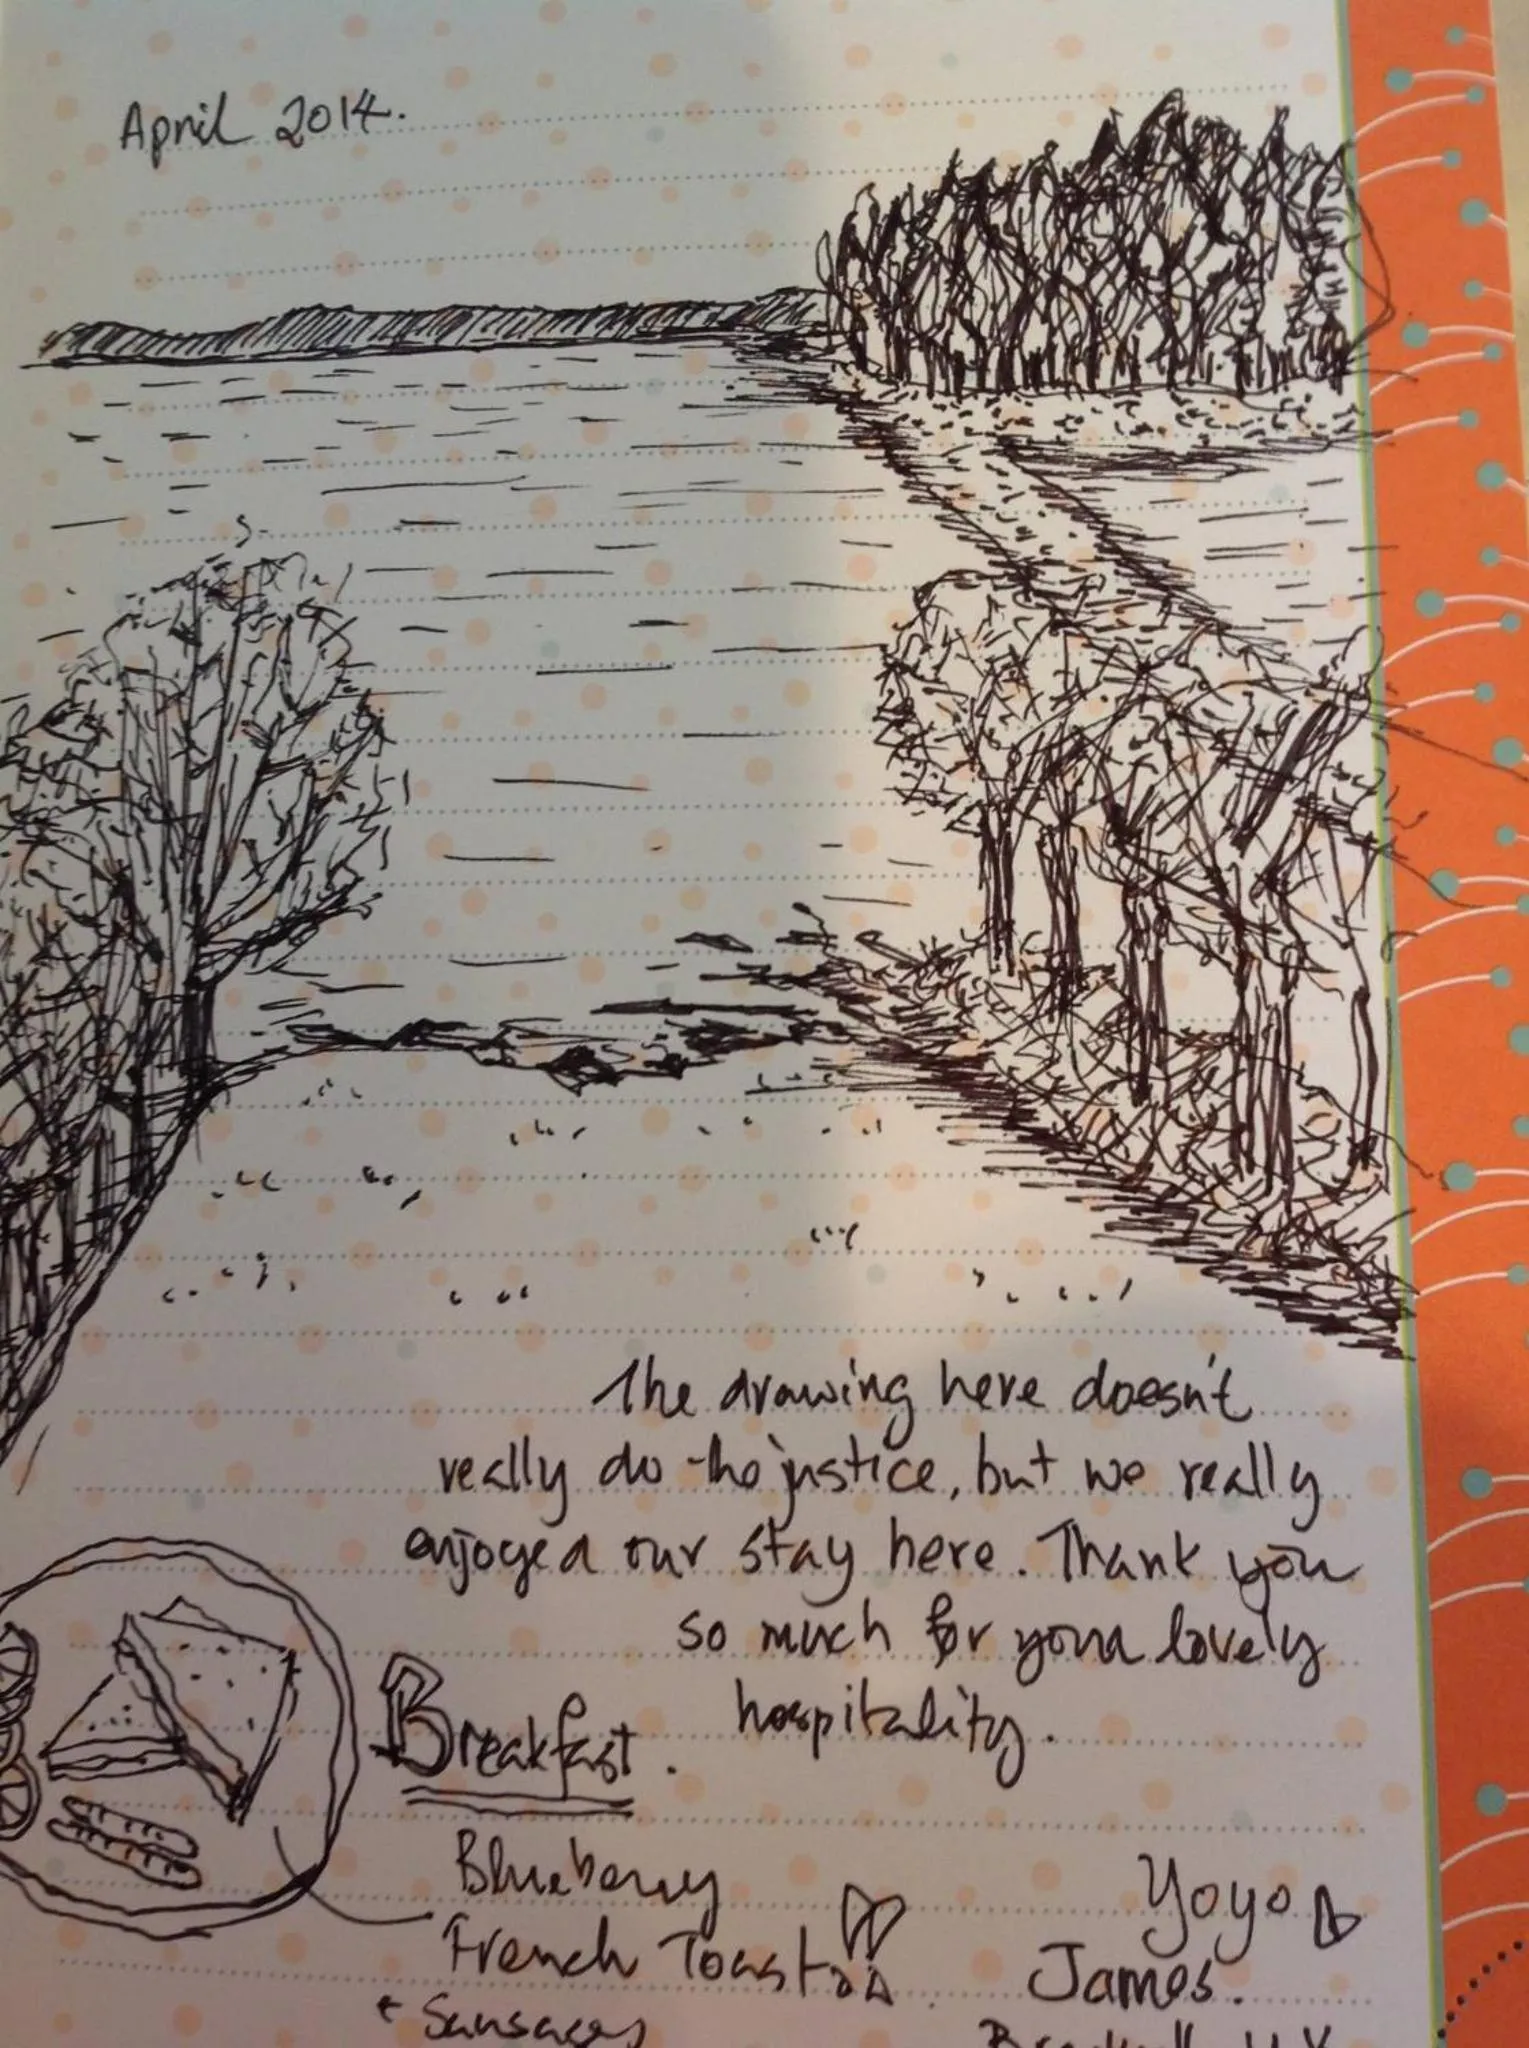 April 2014.
The drawing here doesn't
really do the justice, but we really
enjoyed our stay here. Thank you
so much for your lovely
hospitality.
Breakfast.
Blueberry
French Toast
+ Sausages
Yoyo
James.